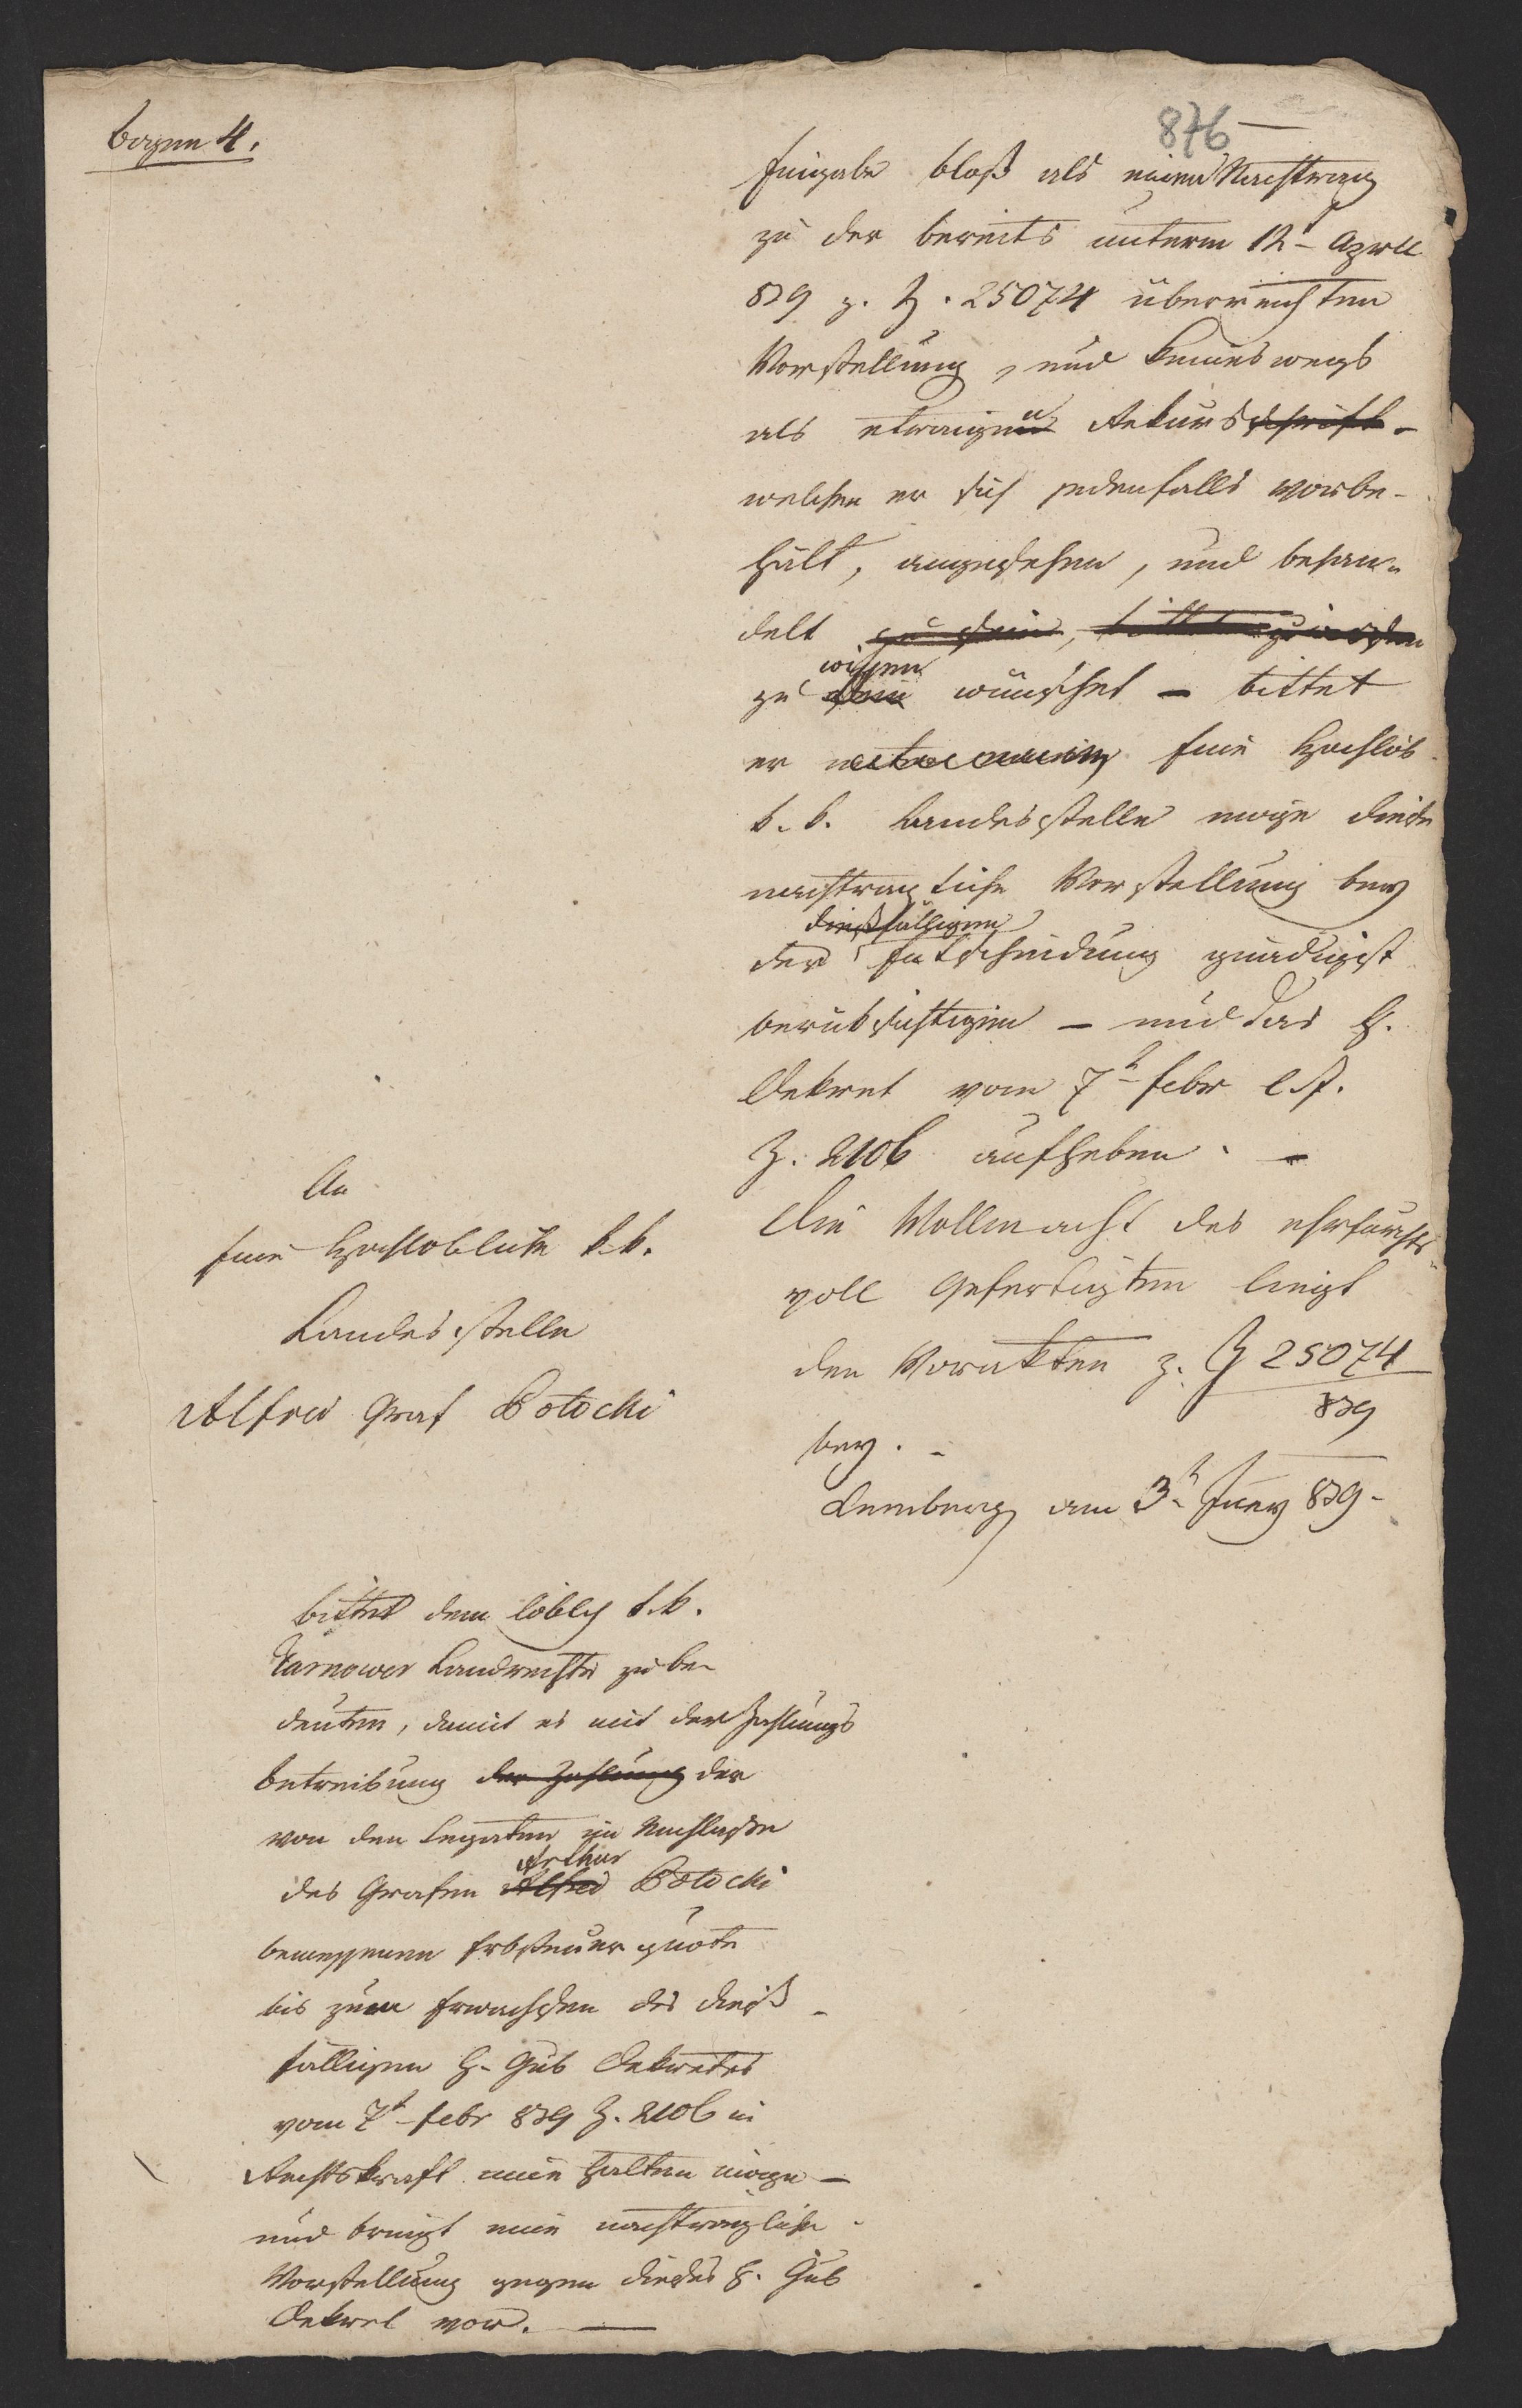 Bogen 4.
876
Eingabe bloß als einen Nachtrag
zu der bereits unterm 12t April
839 z. Z. 25074 überreichten
Vorstellung, und keineswegs
als etwaigen Rekurs schrift -
welchen er sich jedenfalls vorbe-
hält, angesehen, und behan-
delt zu sein, bittet zu werden
wissen
zu sein wünschet – bittet
er Eine Hochlöb
k. k. Landesstelle möge diese
nachträgliche Vorstellung bey
dießfälligen
der Entscheidung gnädigst
berücksichtigen – und das h.
Dekret vom 7t Febr
Z. 2106 aufheben. –
Die Vollmacht des ehrfurchts-
voll Gefertigten liegt
den Vorakten z. Z 25074
839
bey. -
Lemberg am 3t Juny 839 -
An
Eine Hochlobliche k. k.
Landesstelle
Alfred Graf Potocki
bittet dem löbl k. k.
Tarnower Landrechte zu be-
deuten, damit es mit der Zahlungs
betreibung der Zahlung der
von den Legaten im Nachlasse
Arthur
des Grafen Alfred Potocki
bemessenen Erbsteuer quote
bis zum Erwachsen des dieß-
fälligen h. Gub Dekretes
vom 7t Febr 839 Z. 2106 in
Rechtskraft inne halten möge –
und bringt eine nachträgliche
Vorstellung gegen dieses h. Gub
Dekret vor. —